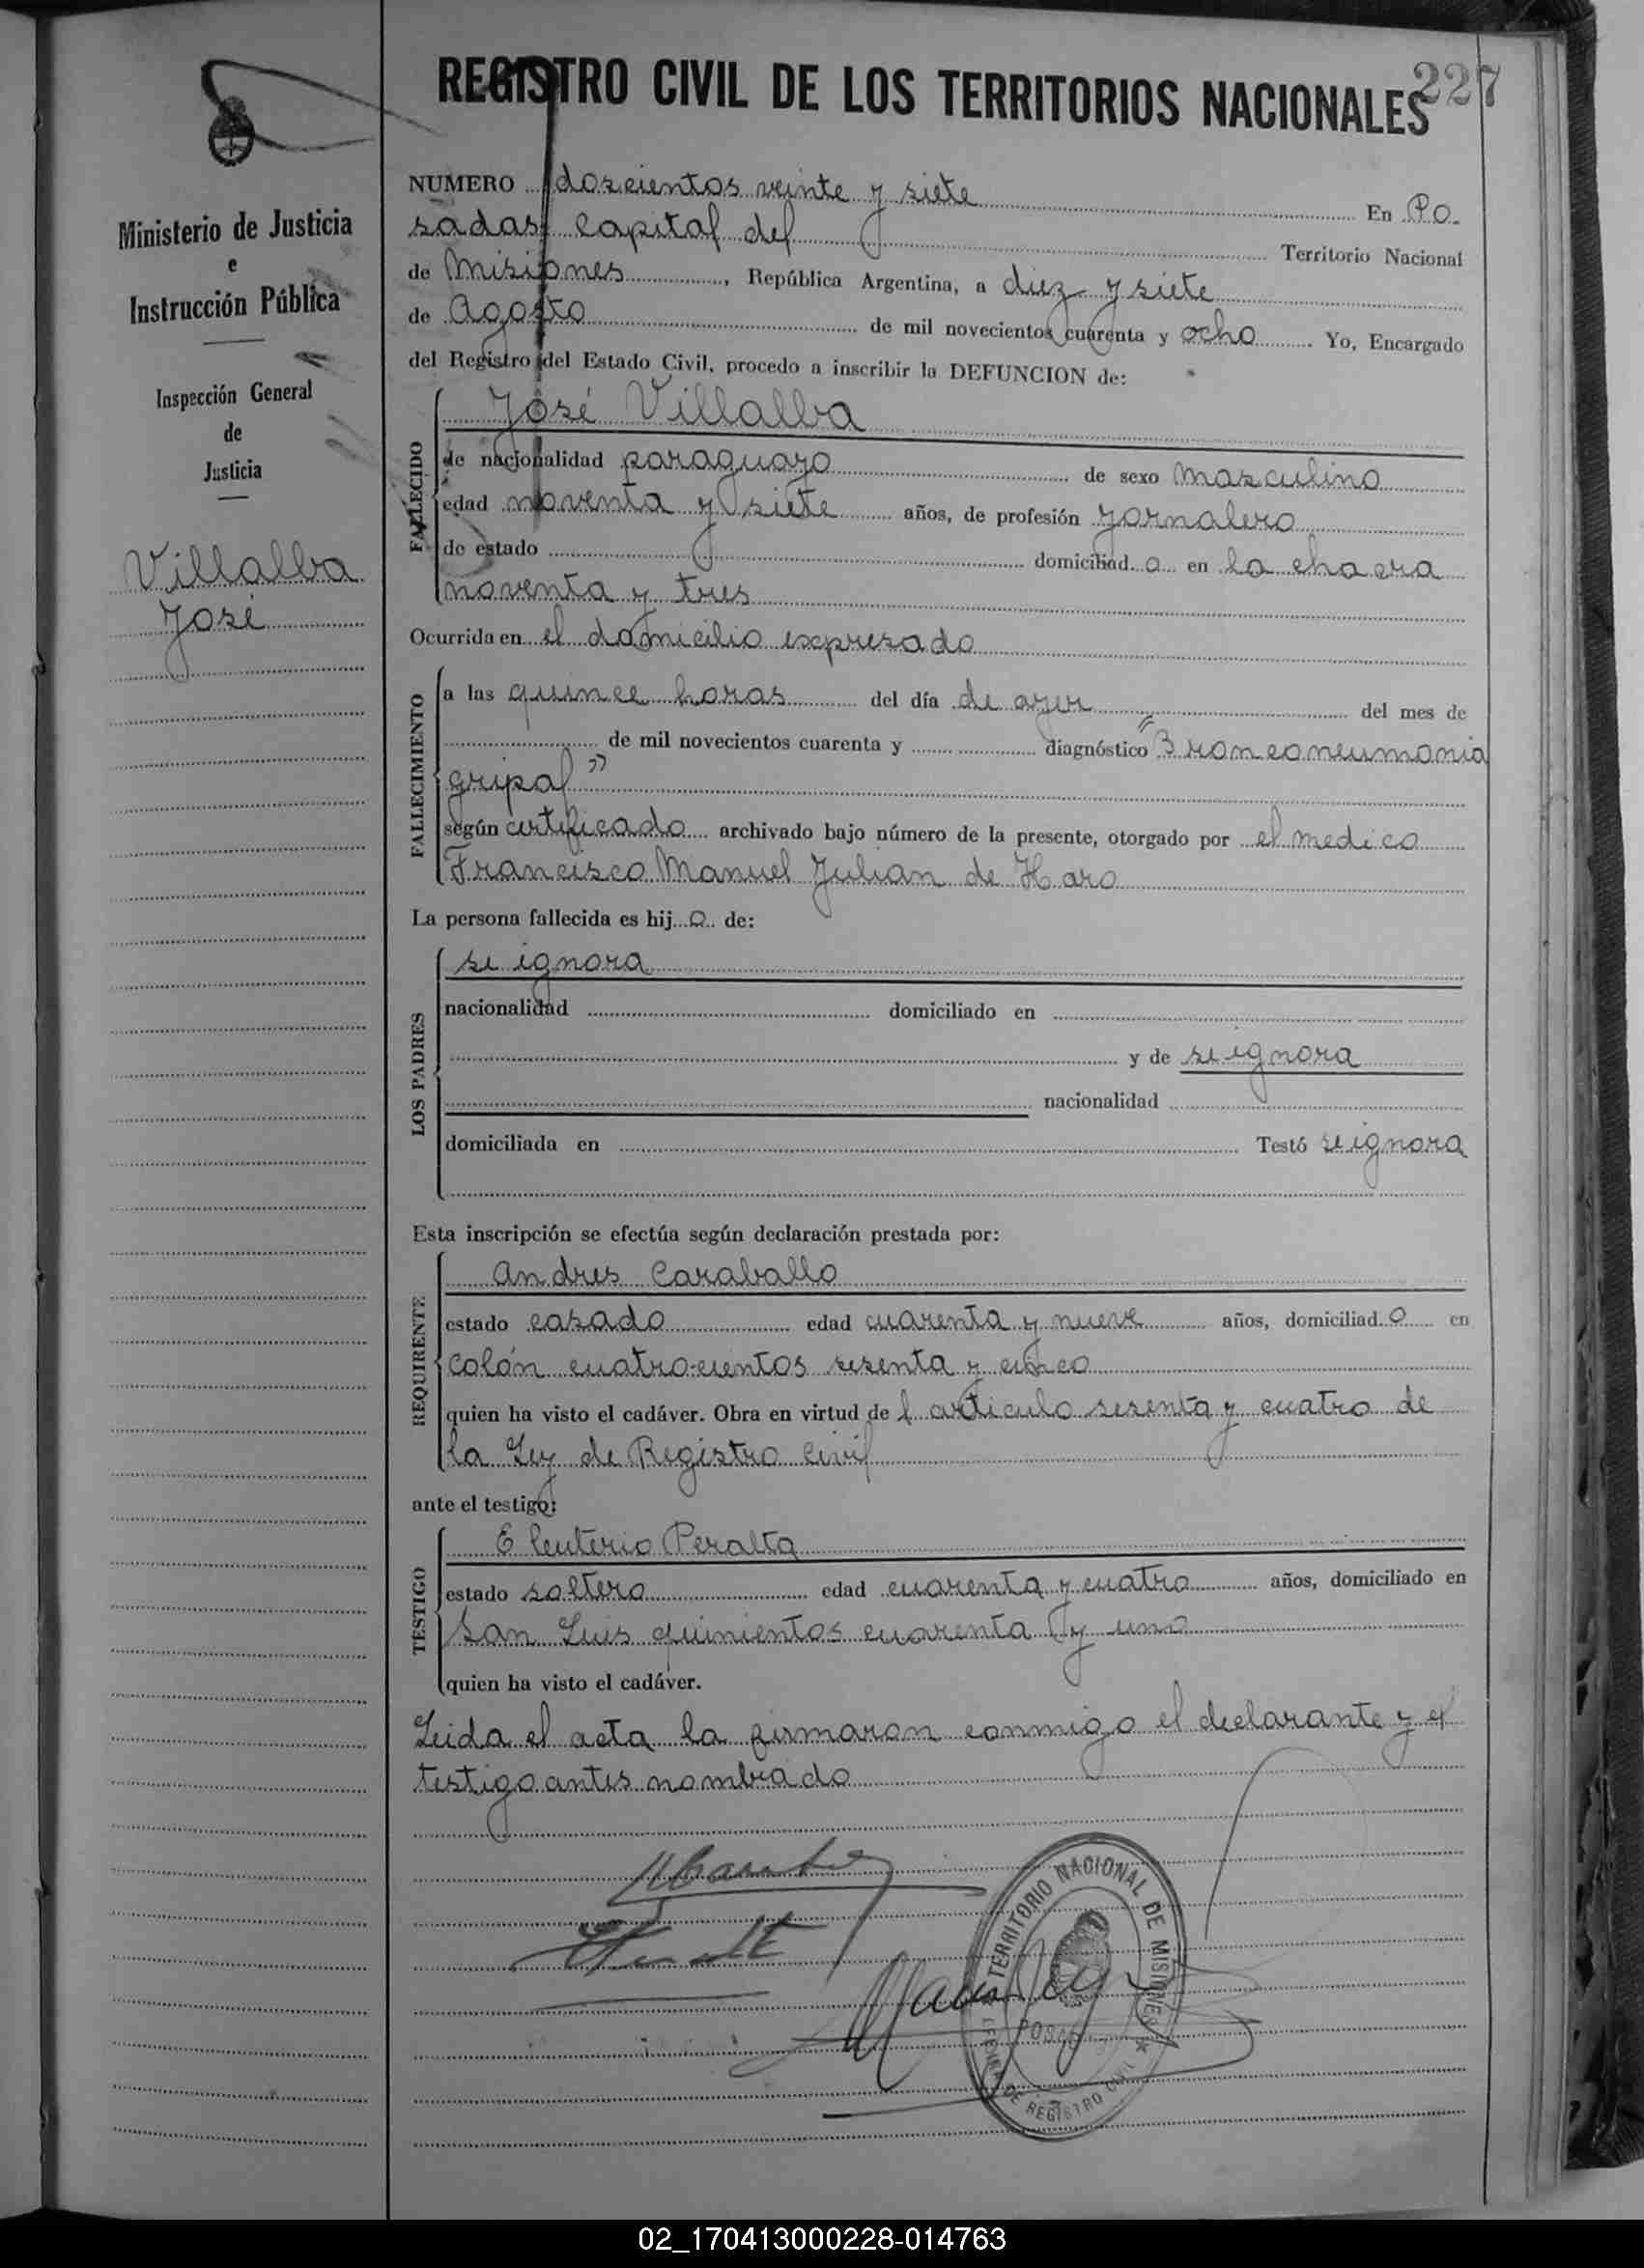 REGISTRO CIVIL DE LOS TERRITORIOS NACIONALES
227
Ministerio de Justicia
e
Instrucción Pública
Inspección General
de
Justicia
Villalba
José
NUMERO doscientos veinte y siete En Po-
sadas capital del Territorio Nacional
de Misiones, República Argentina, a diez y siete
de Agosto de mil novecientos cuarenta y ocho Yo, Encargado
del Registro del Estado Civil, procedo a inscribir la DEFUNCION de:
FALLECIDO
José Villalba
de nacionalidad paraguayo de sexo masculino
edad noventa y siete años, de profesión jornalero
de estado domiciliad o en la chacra
noventa y tres
Ocurrida en el domicilio expresado
FALLECIMIENTO
a las quince horas del día de ayer del mes de
de mil novecientos cuarenta y diagnóstico "Bronconeumonia
gripal"
según certificado archivado bajo número de la presente, otorgado por el medico
Francisco Manuel Julian de Haro
La persona fallecida es hij o de:
LOS PADRES
se ignora
nacionalidad domiciliado en
y de se ignora
nacionalidad
domiciliada en Testó se ignora
Esta inscripción se efectúa según declaración prestada por:
REQUIRENTE
Andres Caraballo
estado casado edad cuarenta y nueve años, domiciliad o en
Colón cuatrocientos sesenta y cinco
quien ha visto el cadáver. Obra en virtud de l articulo sesenta y cuatro de
la Ley de Registro Civil
ante el testigo:
TESTIGO
Eleuterio Peralta
estado soltero edad cuarenta y cuatro años, domiciliado en
San Luis quinientos cuarenta y uno
quien ha visto el cadáver.
Leida el acta la firmaron conmigo el declarante y el
testigo antes nombrado
TERRITORIO NACIONAL DE MISIONES
DE REGISTRO CIVIL
02_170413000228-014763